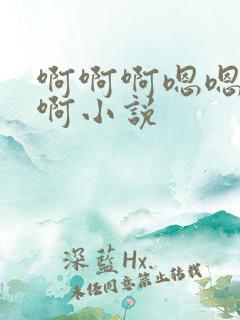 啊啊啊嗯嗯
啊小说
深藍Hx.
未任同意禁止转载